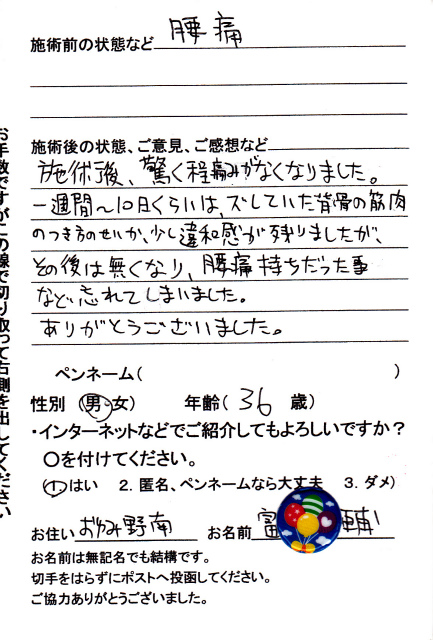 施術前の状態など 腰痛
施術後の状態、ご意見、ご感想など
施術後、驚く程痛みがなくなりました。
一週間〜10日くらいは、ズレていた背骨の筋肉
のつき方のせいか、少し違和感が残りましたが、
その後は無くなり、腰痛持ちだった事
など忘れてしまいました。
ありがとうございました。
ペンネーム( )
性別 (男・女) 年齢( 36 歳)
・インターネットなどでご紹介してもよろしいですか?
○を付けてください。
(1.はい 2. 匿名、ペンネームなら大丈夫 3. ダメ)
お住い おかみ野南 お名前 富 輔
お名前は無記名でも結構です。
切手をはらずにポストへ投函してください。
ご協力ありがとうございました。
お手数ですがこの線で切り取って右側を出してください